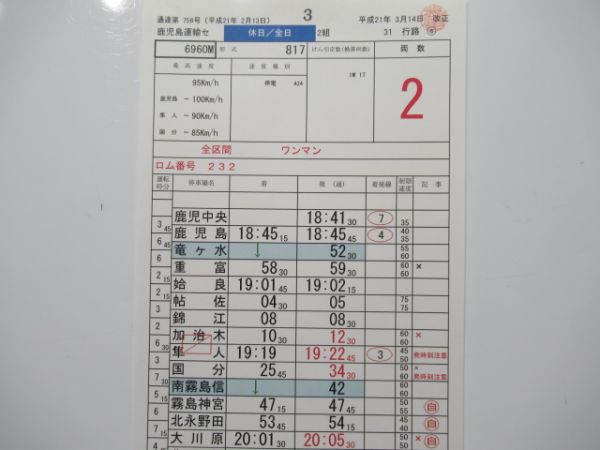 通達第 756号 (平成21年 2月13日)
3
平成21年 3月14日 改正
鹿児島運輸セ 休日/全日 2組 31 行路
6960M 形式 817 けん引定数(換算両数) 両数
最高速度 速度種別
95Km/h 停電 A24 1M 1T 2
鹿児島 ～ 100Km/h
隼人 ～ 90Km/h
国分 ～ 85Km/h
全区間 ワンマン
ロム番号 232
運転時分 停車場名 着 発(通) 着発線 制限速度 記事
鹿児中央 18:41 30 7 35
3 45
鹿児島 18:45 15 18:45 45 4 40 35
6 45
竜ヶ水 ↓ 52 30 55 60
6
重富 58 30 59 30 60 60 ×
2 45
姶良 19:01 45 19:02 15
2 15
帖佐 04 30 05 75 75
3
錦江 08 08 30
2
加治木 10 30 12 30 60 60 ×
6 30
隼人 19:19 19:22 45 3 45 50 発時刻注意
3
国分 25 45 34 30 50 60 × 発時刻注意
7 30
南霧島信 ↓ 42 60 60
5 15
霧島神宮 47 15 47 45 50 55 自
6
北永野田 53 45 54 15 50 60 自
7 15
大川原 20:01 30 20:05 30 50 50 × 自